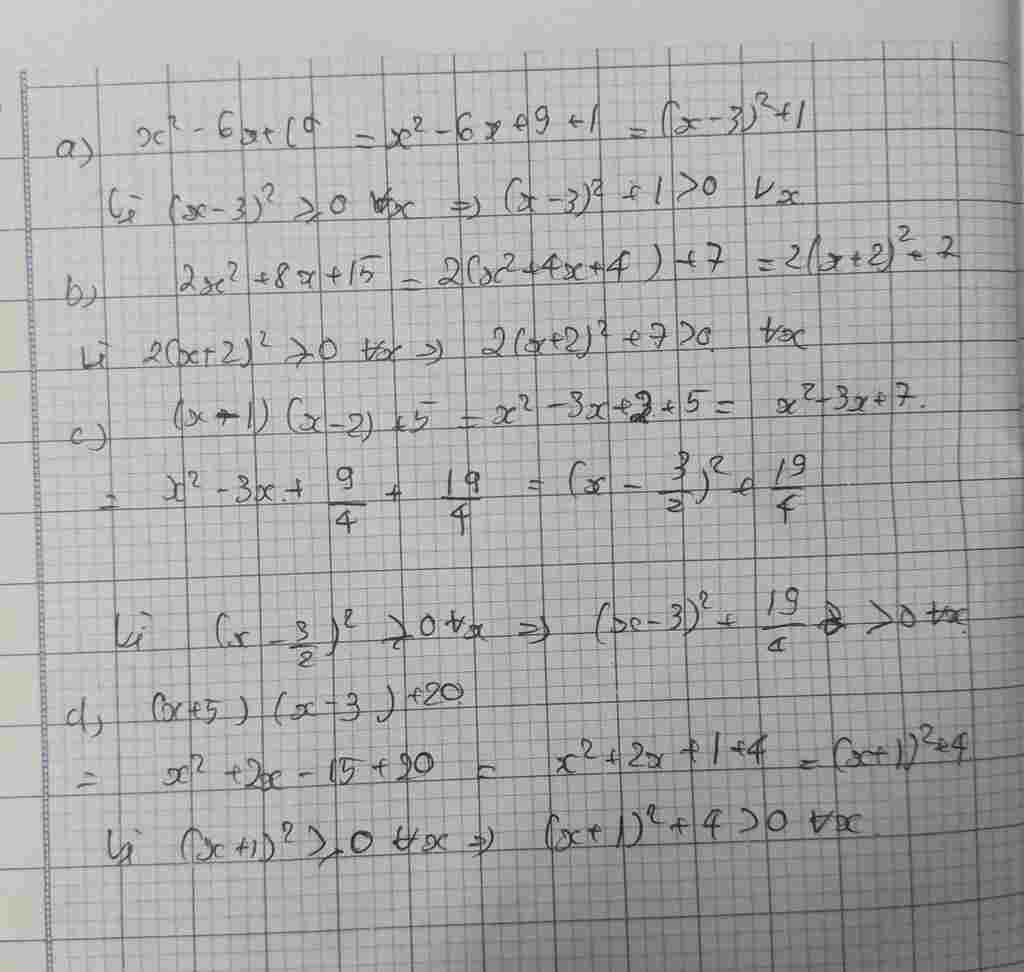 a) x² - 6x + 10 = x² - 6x + 9 + 1 = (x-3)² + 1
Vì (x-3)² ≥ 0 ∀x ⇒ (x-3)² + 1 > 0 ∀x
b) 2x² + 8x + 15 = 2(x² + 4x + 4) + 7 = 2(x+2)² + 7
Vì 2(x+2)² ≥ 0 ∀x ⇒ 2(x+2)² + 7 > 0 ∀x
c) (x-1)(x-2) + 5 = x² - 3x + 2 + 5 = x² - 3x + 7.
= x² - 3x + 9/4 + 19/4 = (x - 3/2)² + 19/4
Vì (x - 3/2)² ≥ 0 ∀x ⇒ (x-3)² + 19/4 > 0 ∀x
d) (x+5)(x-3) + 20
= x² + 2x - 15 + 20 = x² + 2x + 1 + 4 = (x+1)² + 4
Vì (x+1)² ≥ 0 ∀x ⇒ (x+1)² + 4 > 0 ∀x